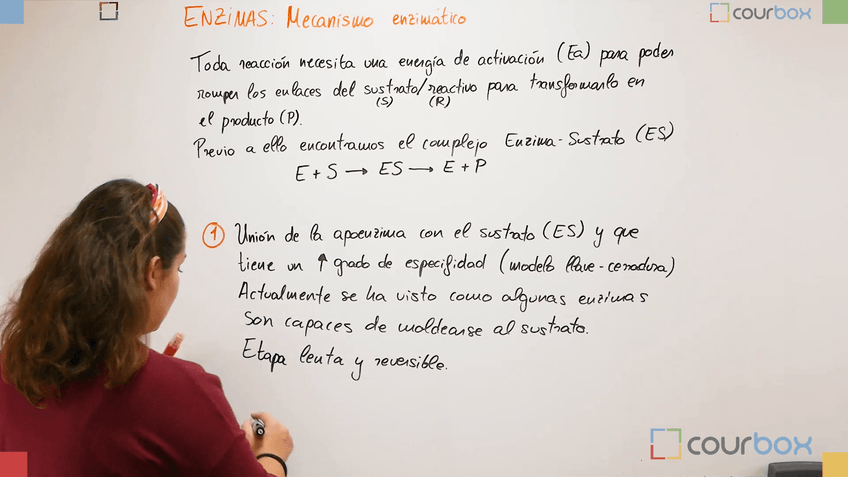 ENZIMAS: Mecanismo enzimático
courbox
Toda reacción necesita una energía de activación (Ea) para poder
romper los enlaces del sustrato/reactivo para transformarlo en
(S) (R)
el producto (P).
Previo a ello encontramos el complejo Enzima-Sustrato (ES)
E + S → ES → E + P
1 Unión de la apoenzima con el sustrato (ES) y que
tiene un ↑ grado de especifidad (modelo llave-cerradura)
Actualmente se ha visto como algunas enzimas
son capaces de moldearse al sustrato.
Etapa lenta y reversible.
courbox